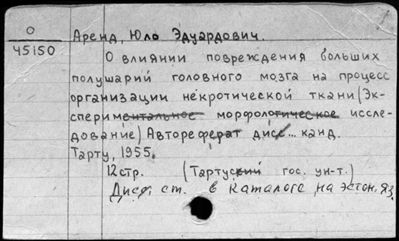 О
45150
Аренд, Юло Эдуардович.
О влиянии повреждения больших
полушарий головного мозга на процесс
организации некротической ткани (Эк-
спериментальное морфологическое иссле-
дование) Автореферат дис... канд.
Тарту, 1955.
12 стр. (Тартуский гос. ун-т.)
Дисс. ст. в каталоге на эстон. яз.